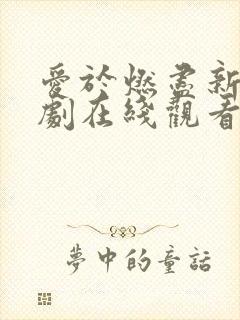 愛於燃盡新
劇在綫觀看
夢中的童話